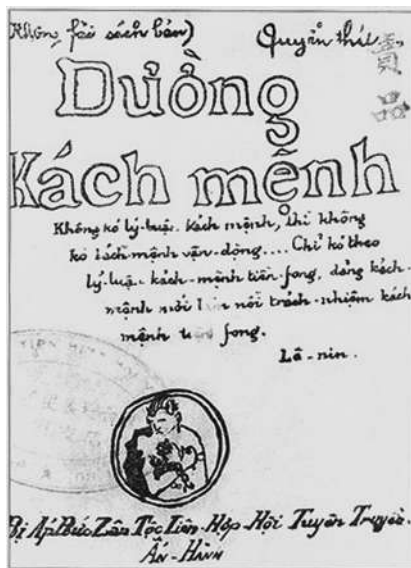 (Không fải sách bán) Quyển thứ
Đường
Kách mệnh
Không kó lý-luận kách mệnh, thì không
kó kách mệnh vận-động.... Chỉ kó theo
lý-luận kách-mệnh tiền-fong, đảng kách-
mệnh mới làm nổi trách-nhiệm kách
mệnh tiền fong.
Lê-nin.
Bị Áp Bức Zân Tộc Liên-Hợp-Hội Tuyên Truyền-
Ấn-Hành